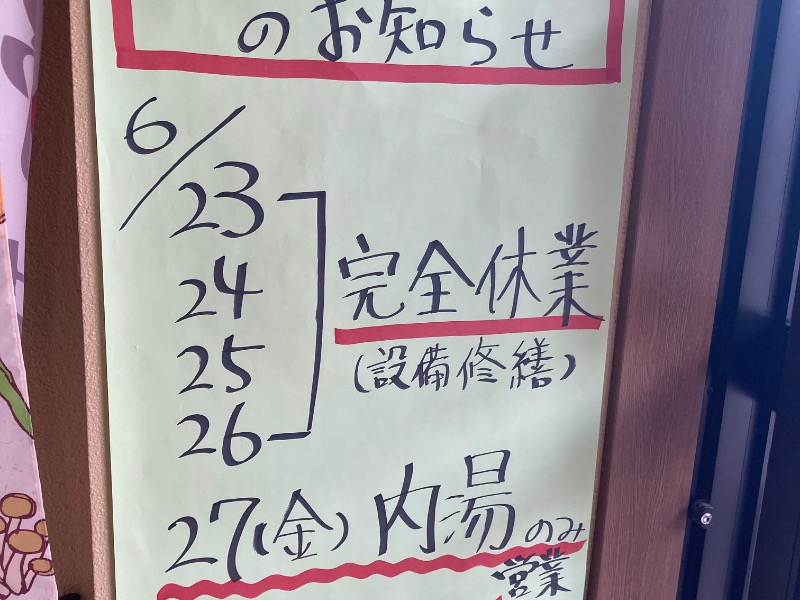 のお知らせ
6/23
24
25
26
完全休業
(設備修繕)
27(金) 内湯のみ
営業